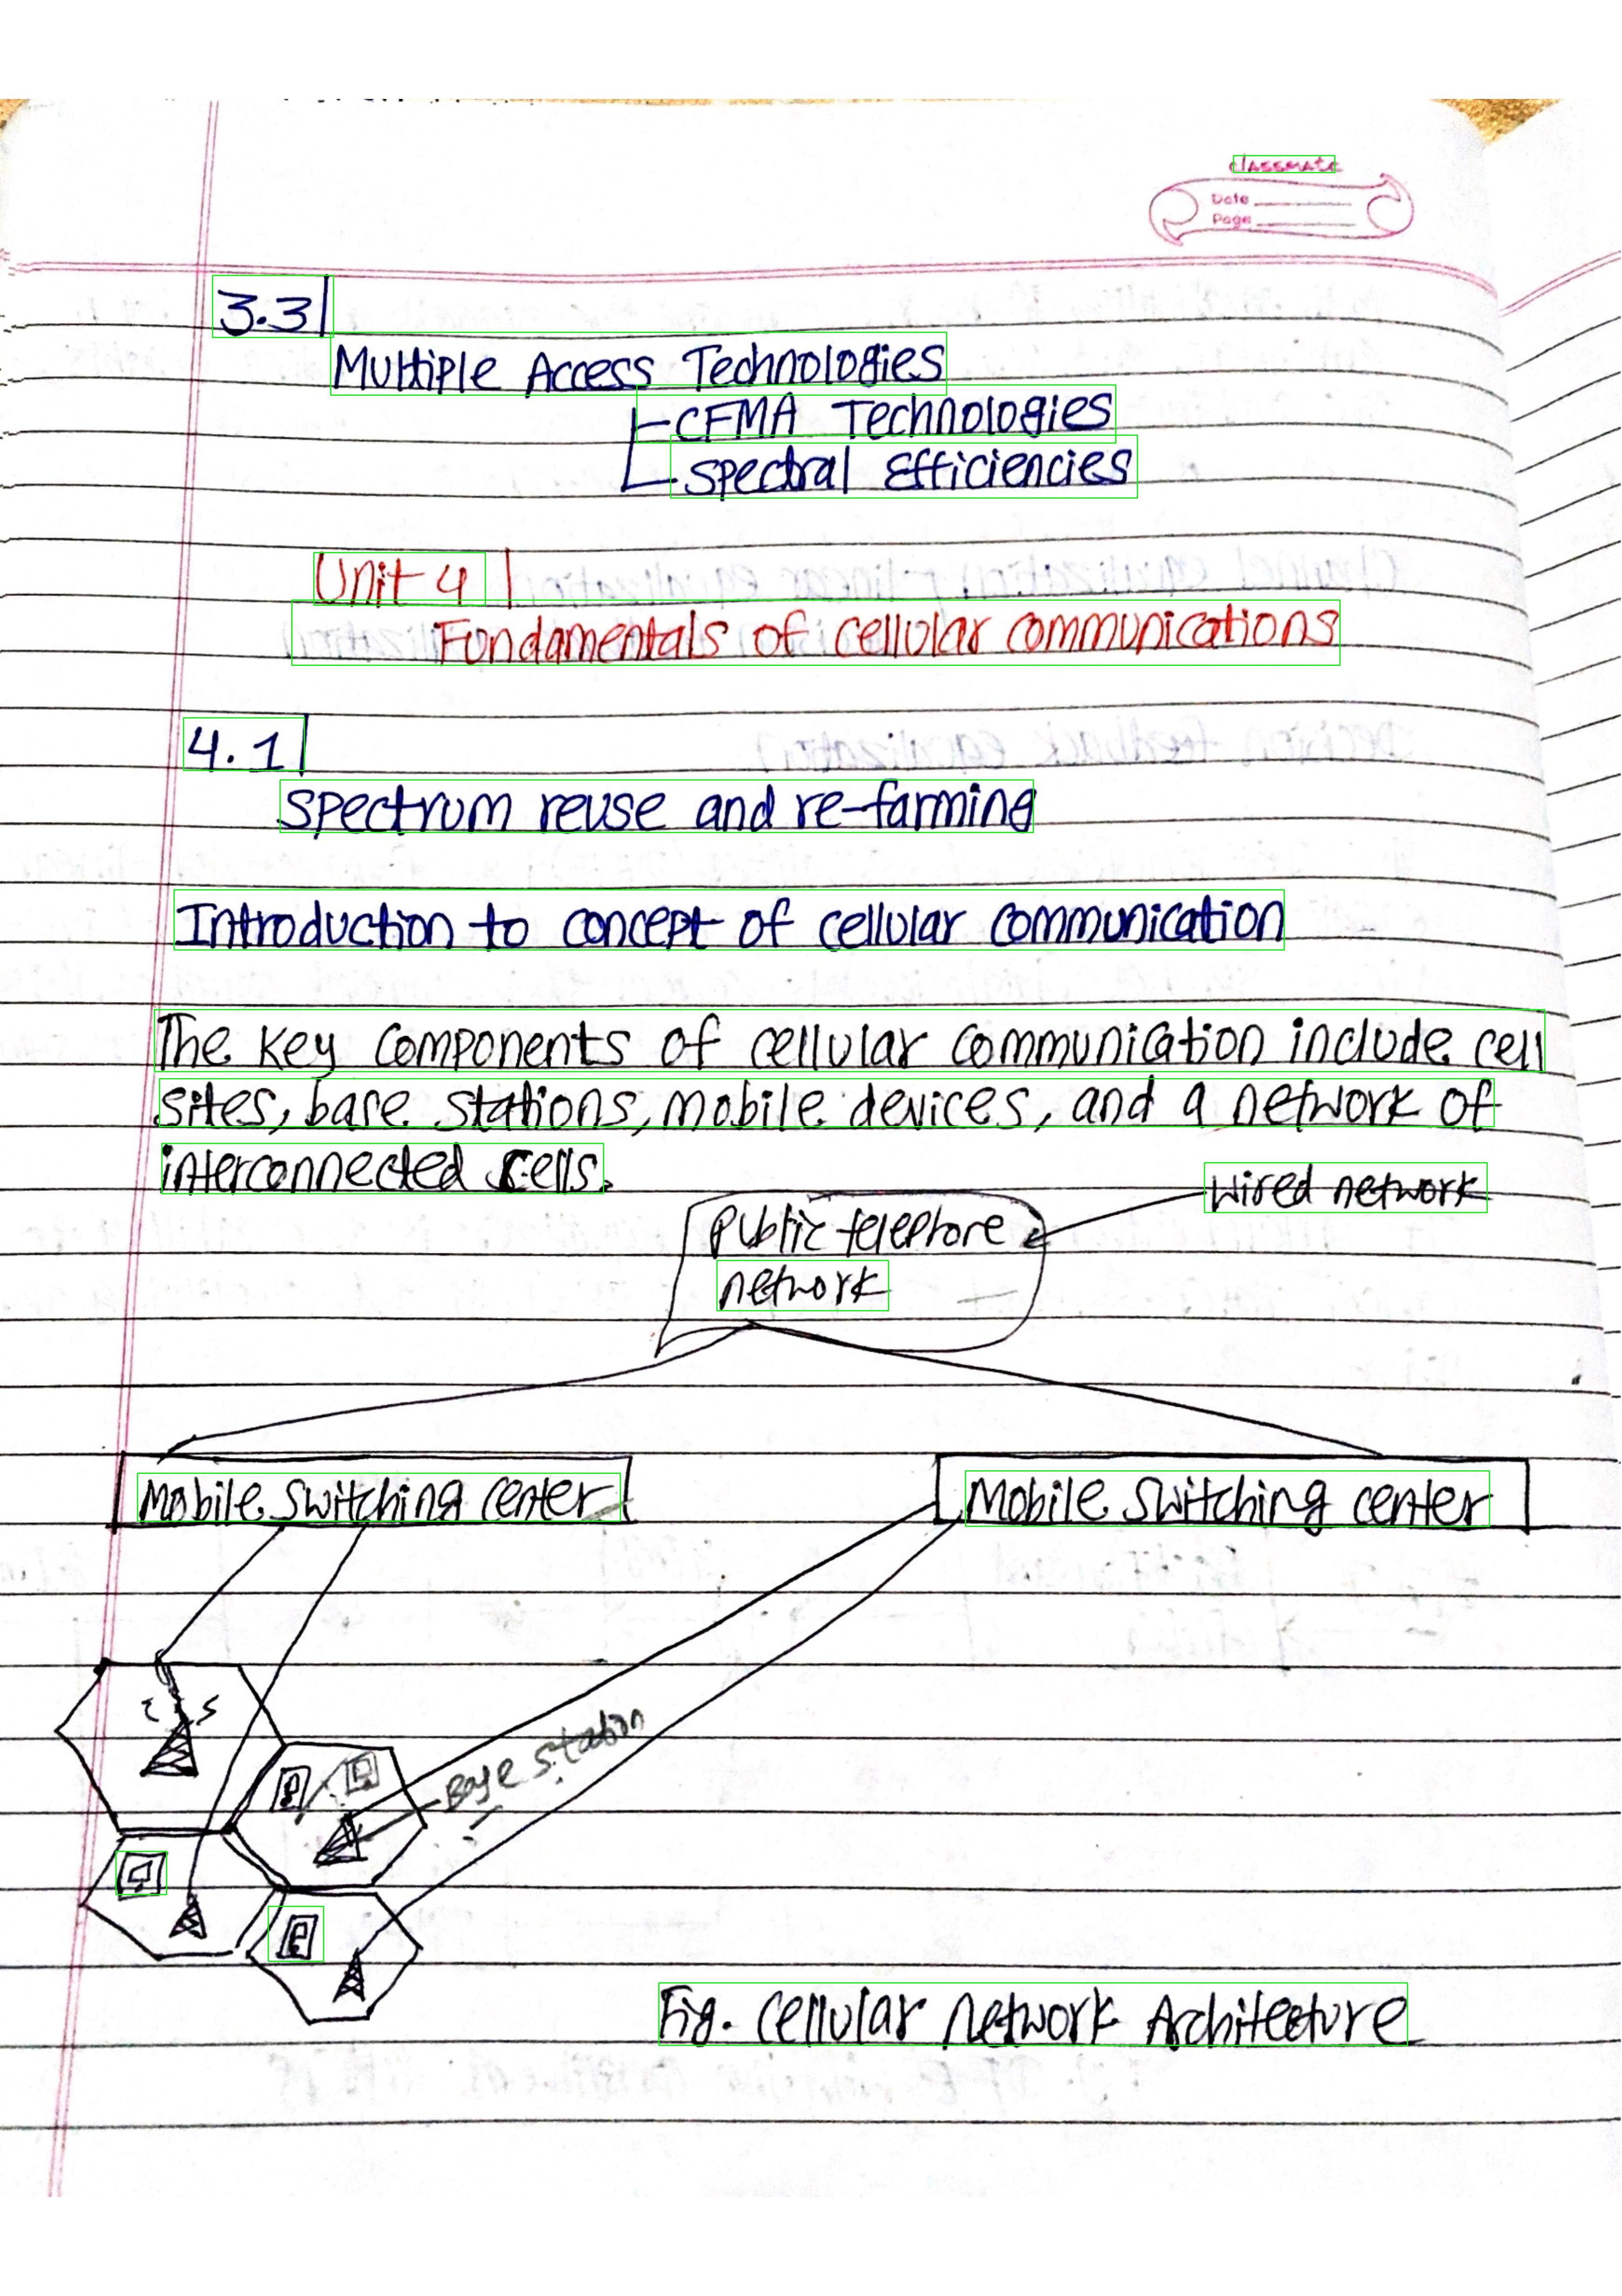 classmate
Date
Page
3.3
Multiple Access Technologies
CFMA Technologies
Spectral Efficiencies
Unit 4
Fundamentals of cellular communications
4.1
Spectrum reuse and re-farming
Introduction to concept of cellular communication
The key components of cellular communication include cell
sites, base stations, mobile devices, and a network of
interconnected cells.
wired network
public telephone
network
Mobile switching center
Mobile switching center
Base station
Fig. cellular network Architecture